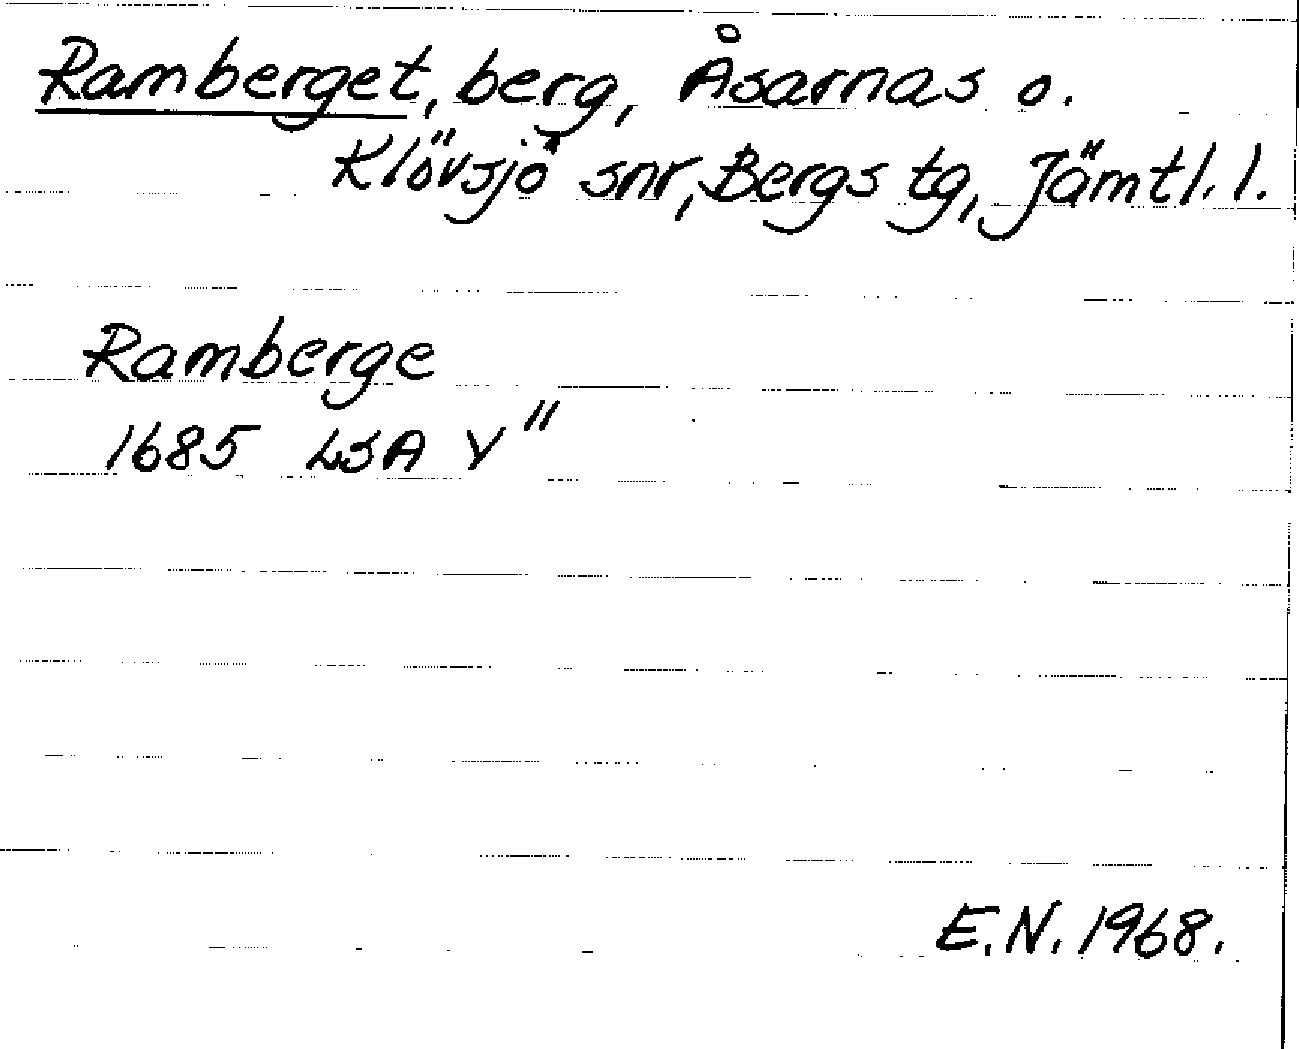 Ramberget, berg, Åsarnas o.
Klövsjö snr, Bergs tg, Jämtl. l.
Ramberge
1685 LSA Y"
E.N. 1968.